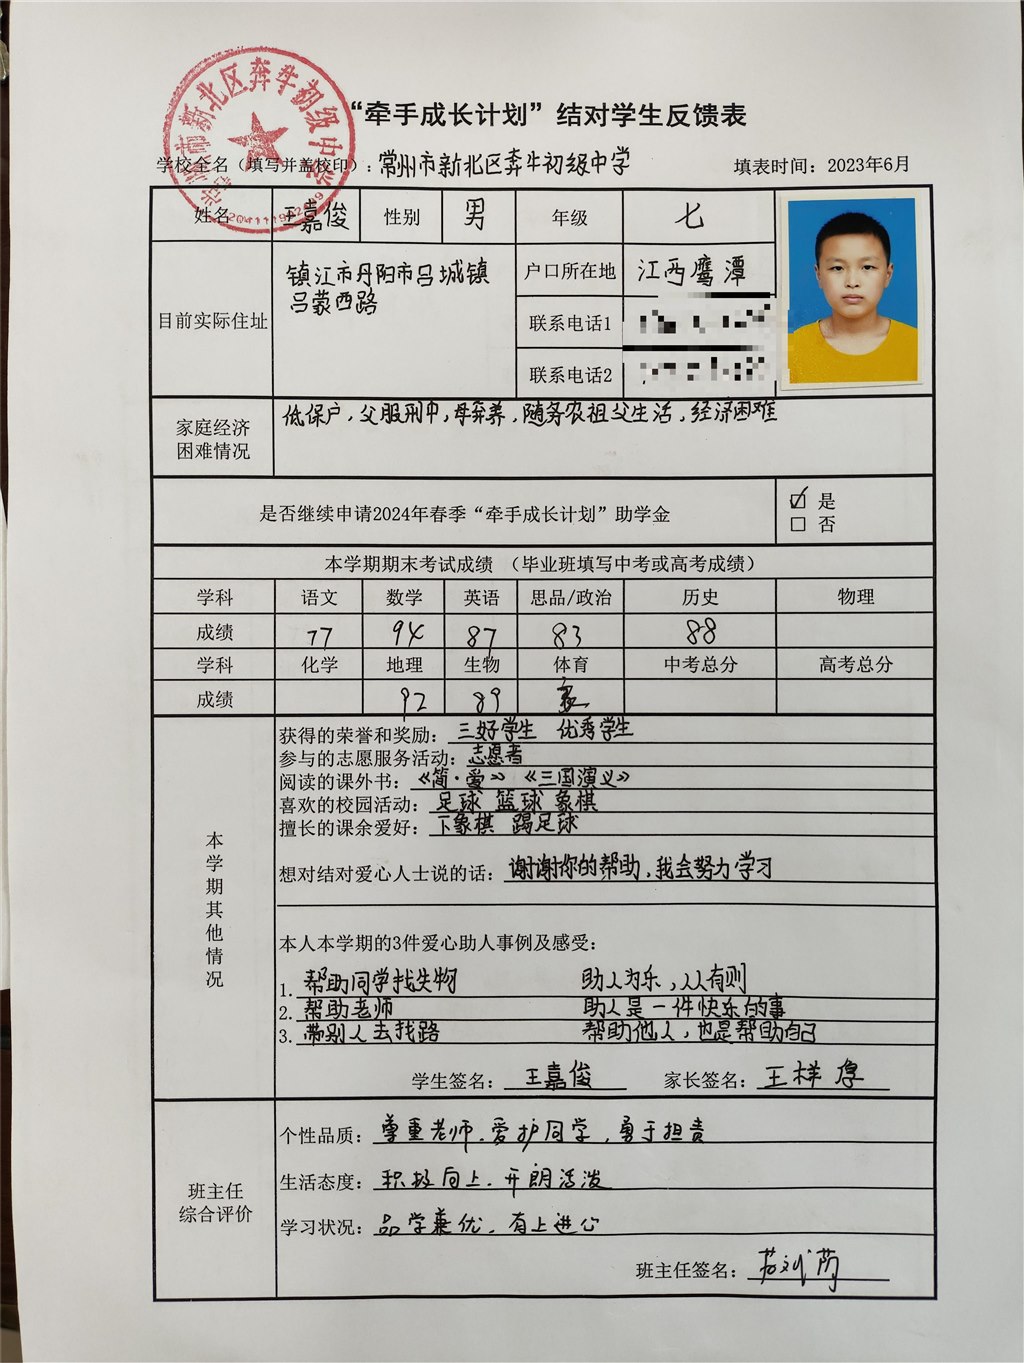 “牵手成长计划”结对学生反馈表
学校全名（填写并盖校印）：常州市新北区奔牛初级中学 填表时间：2023年6月
姓名 王嘉俊 性别 男 年级 七
目前实际住址 镇江市丹阳市吕城镇
吕蒙西路
户口所在地 江西鹰潭
联系电话1
联系电话2
家庭经济
困难情况
低保户，父服刑中，母弃养，随务农祖父生活，经济困难
是否继续申请2024年春季“牵手成长计划”助学金
☑ 是
□ 否
本学期期末考试成绩 （毕业班填写中考或高考成绩）
学科 语文 数学 英语 思品/政治 历史 物理
成绩 77 94 87 83 88
学科 化学 地理 生物 体育 中考总分 高考总分
成绩 92 89
本学期其他情况
获得的荣誉和奖励：三好学生 优秀学生
参与的志愿服务活动：志愿者
阅读的课外书：《简·爱》《三国演义》
喜欢的校园活动：足球 篮球 象棋
擅长的课余爱好：下象棋 踢足球
想对结对爱心人士说的话：谢谢你的帮助，我会努力学习
本人本学期的3件爱心助人事例及感受：
1. 帮助同学找失物 助人为乐，从有则
2. 帮助老师 助人是一件快乐的事
3. 带别人去找路 帮助他人，也是帮助自己
学生签名：王嘉俊 家长签名：王样厚
班主任
综合评价
个性品质：尊重老师，爱护同学，勇于担责
生活态度：积极向上，开朗活泼
学习状况：品学兼优，有上进心
班主任签名：